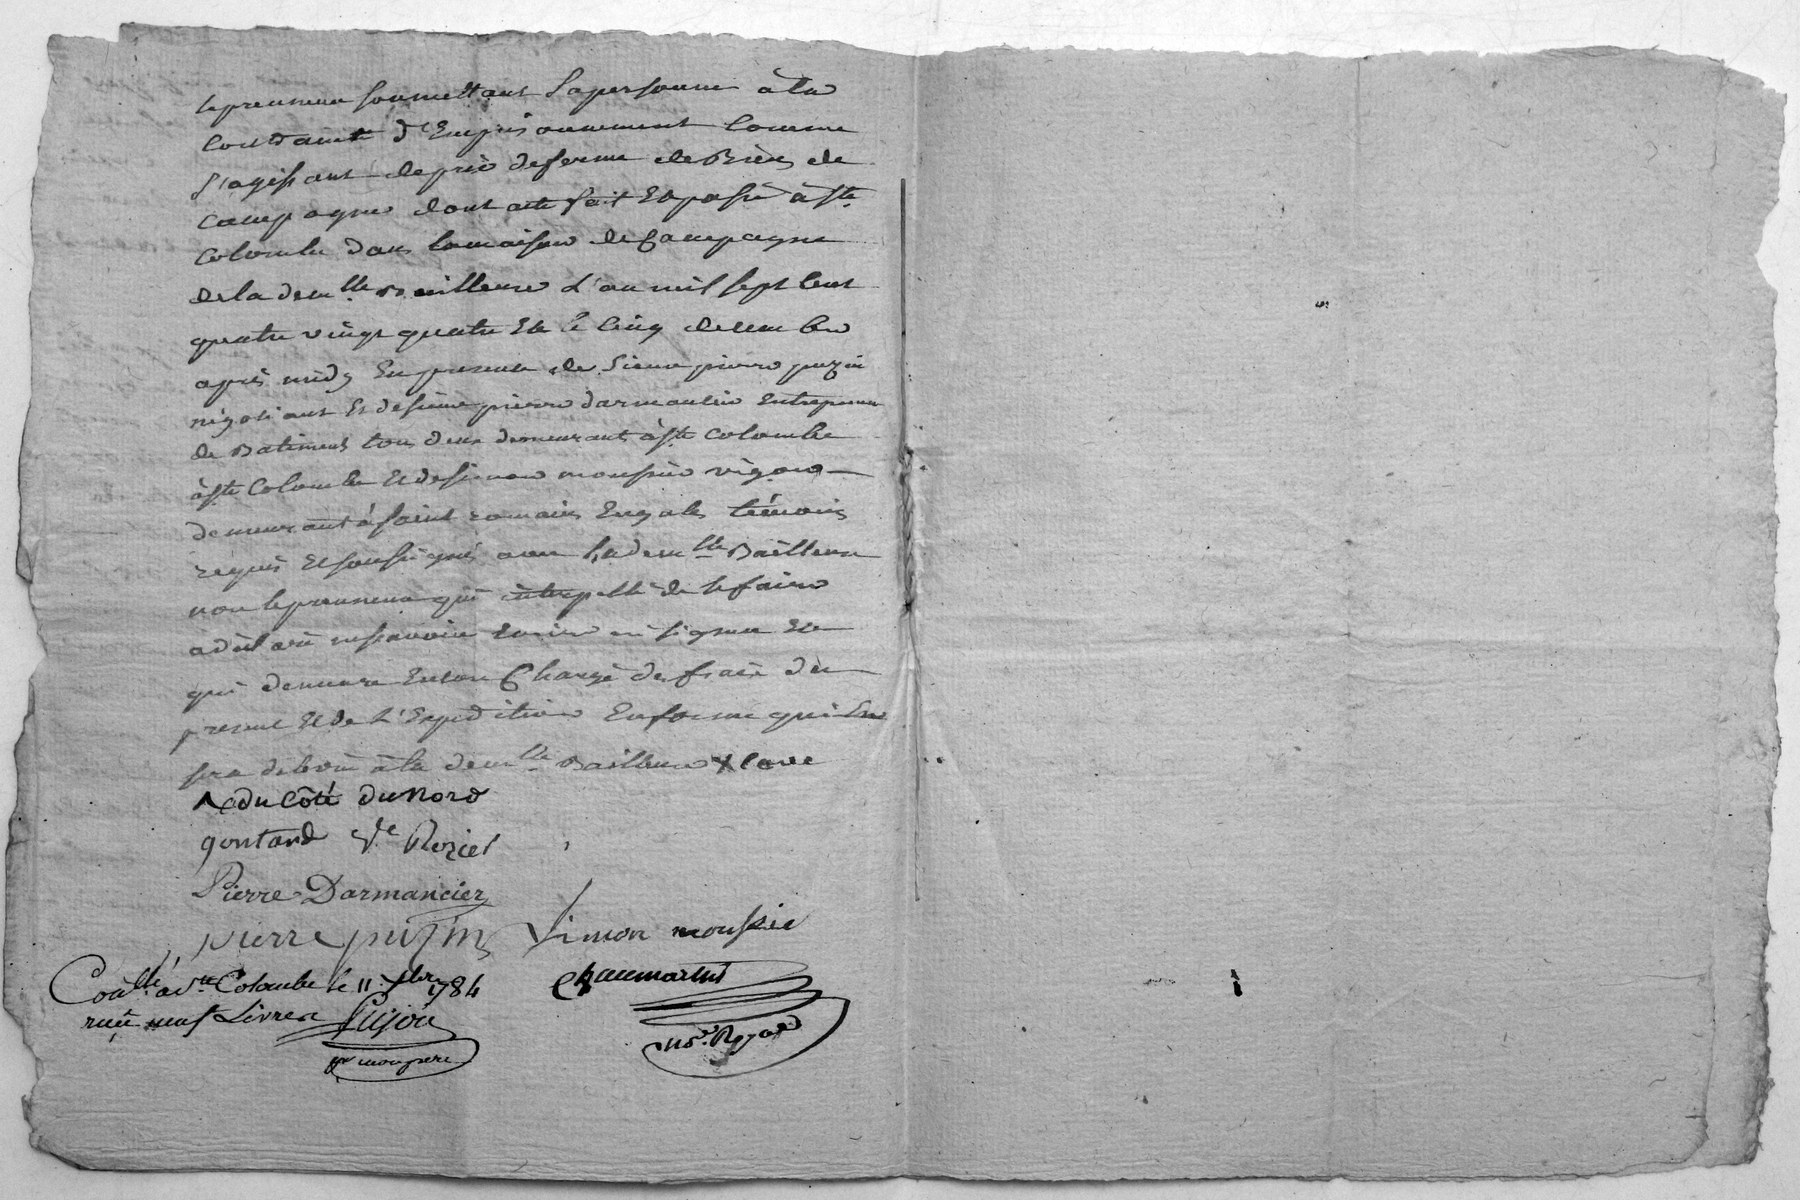 le preneur soumettant sa personne à la
contrainte d'Emprisonnement comme
s'agissant de prix de ferme de Biens de
campagne dont acte fait Et passé à ste
Colombe dans la maison de Campagne
de la demlle Bailleure L'an mil sept cent
quatre vingt quatre Et le cinq decembre
après midy En presence de sieur pierre puzin
négotiant Et de sieur pierre darmancier Entrepreneur
de Batiments tous deux demeurant à ste Colombe
à ste Colombe Et de simon moussier vigneron
demeurant à saint romain En gale témoins
requis Et soussignés avec la demlle Bailleure
non le preneur qui interpellé de le faire
a déclaré ne savoir Ecrire ni signer Et
qui demeure Encore Chargé des frais du
present Et de L'Expedition En forme qui En
sera delivré à la demlle Bailleure X cave
X du côté du nord
gontard ve Rozier
Pierre Darmancier
pierre puzin Simon moussié
Chaumartin
nore Royal
Con'llé à Ste Colombe le 11 xbre 1784
reçu neuf Livres Pujou
pr mon pere